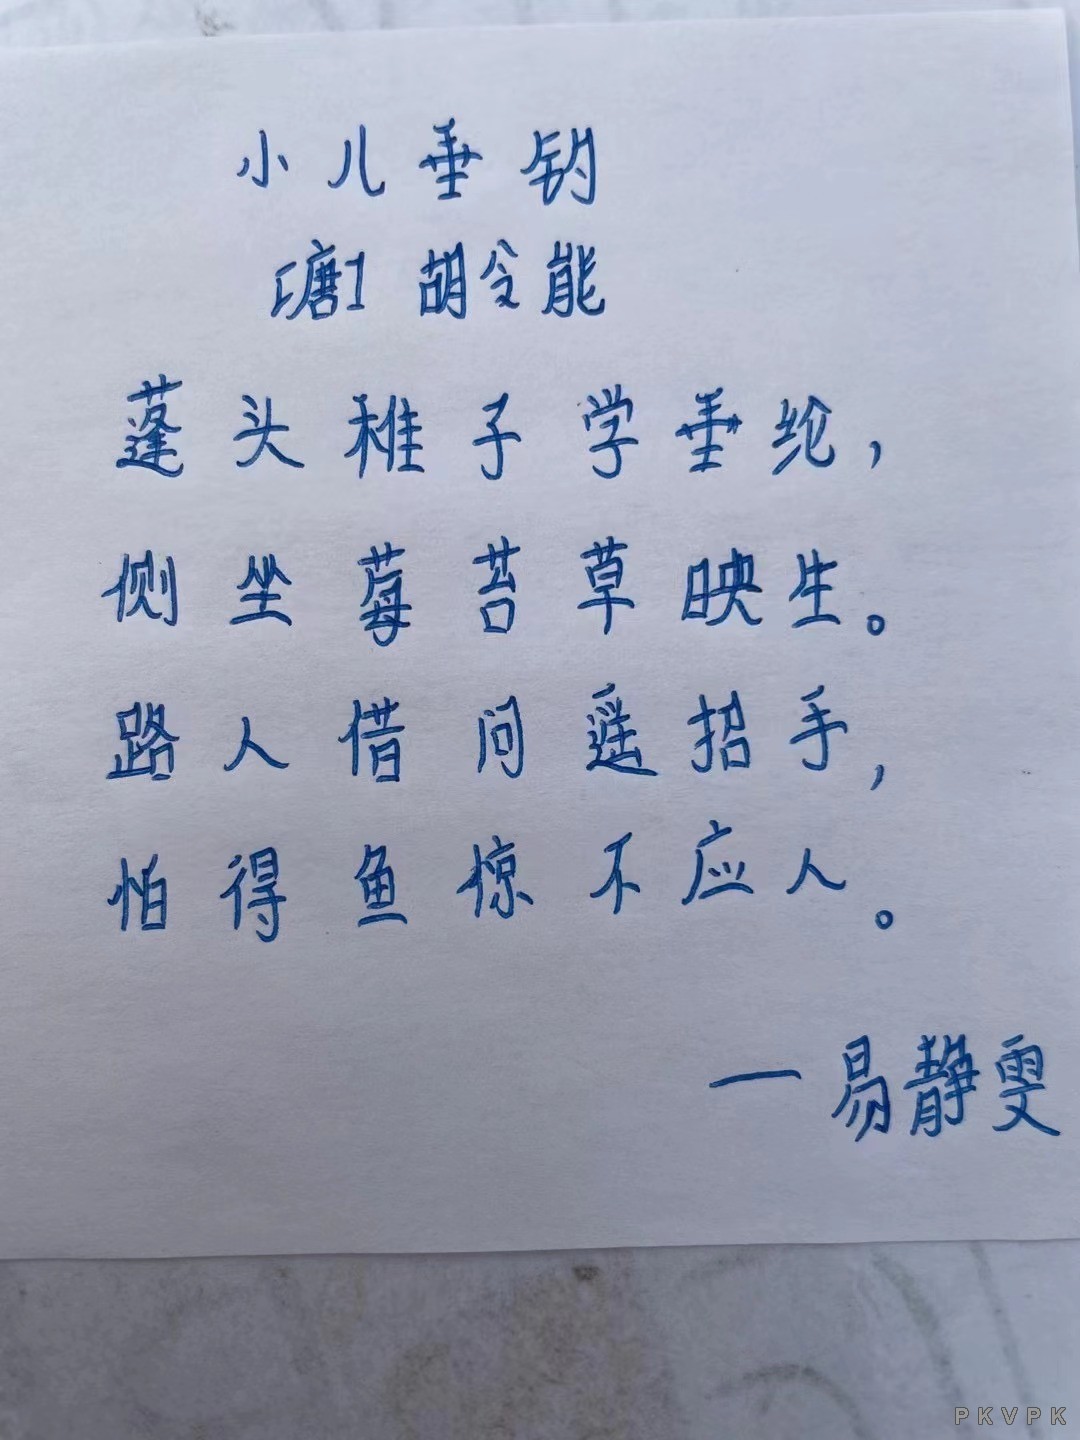 小儿垂钓
[唐] 胡令能
蓬头稚子学垂纶，
侧坐莓苔草映生。
路人借问遥招手，
怕得鱼惊不应人。
—易静雯
PKVPK